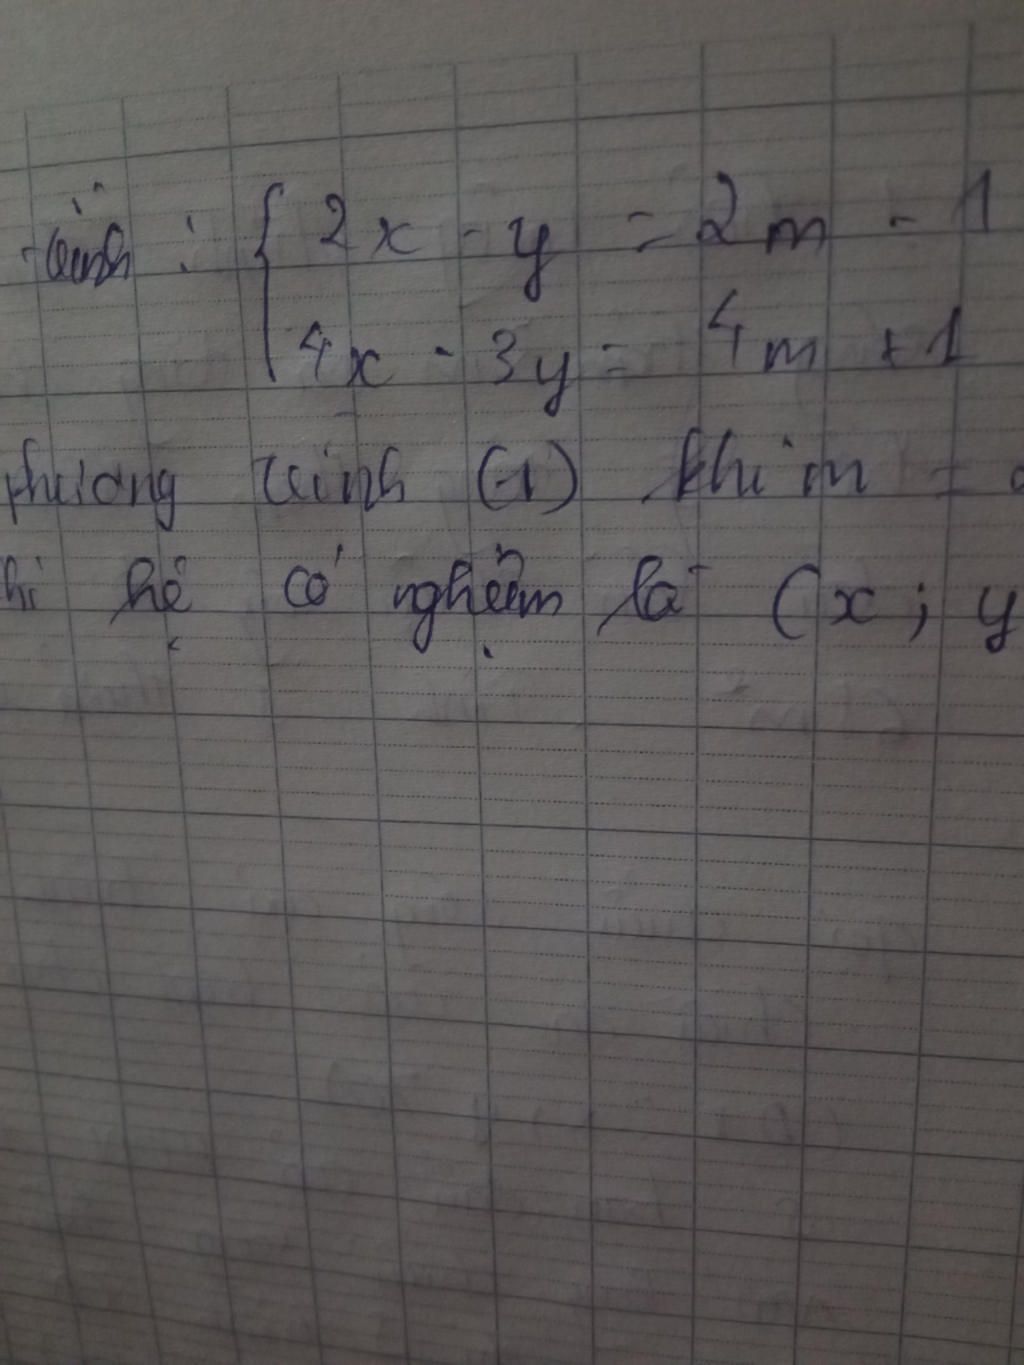 trình : { 2x - y = 2m - 1
4x - 3y = 4m + 1
phương trình (1) khi m =
hệ có nghiệm là (x ; y